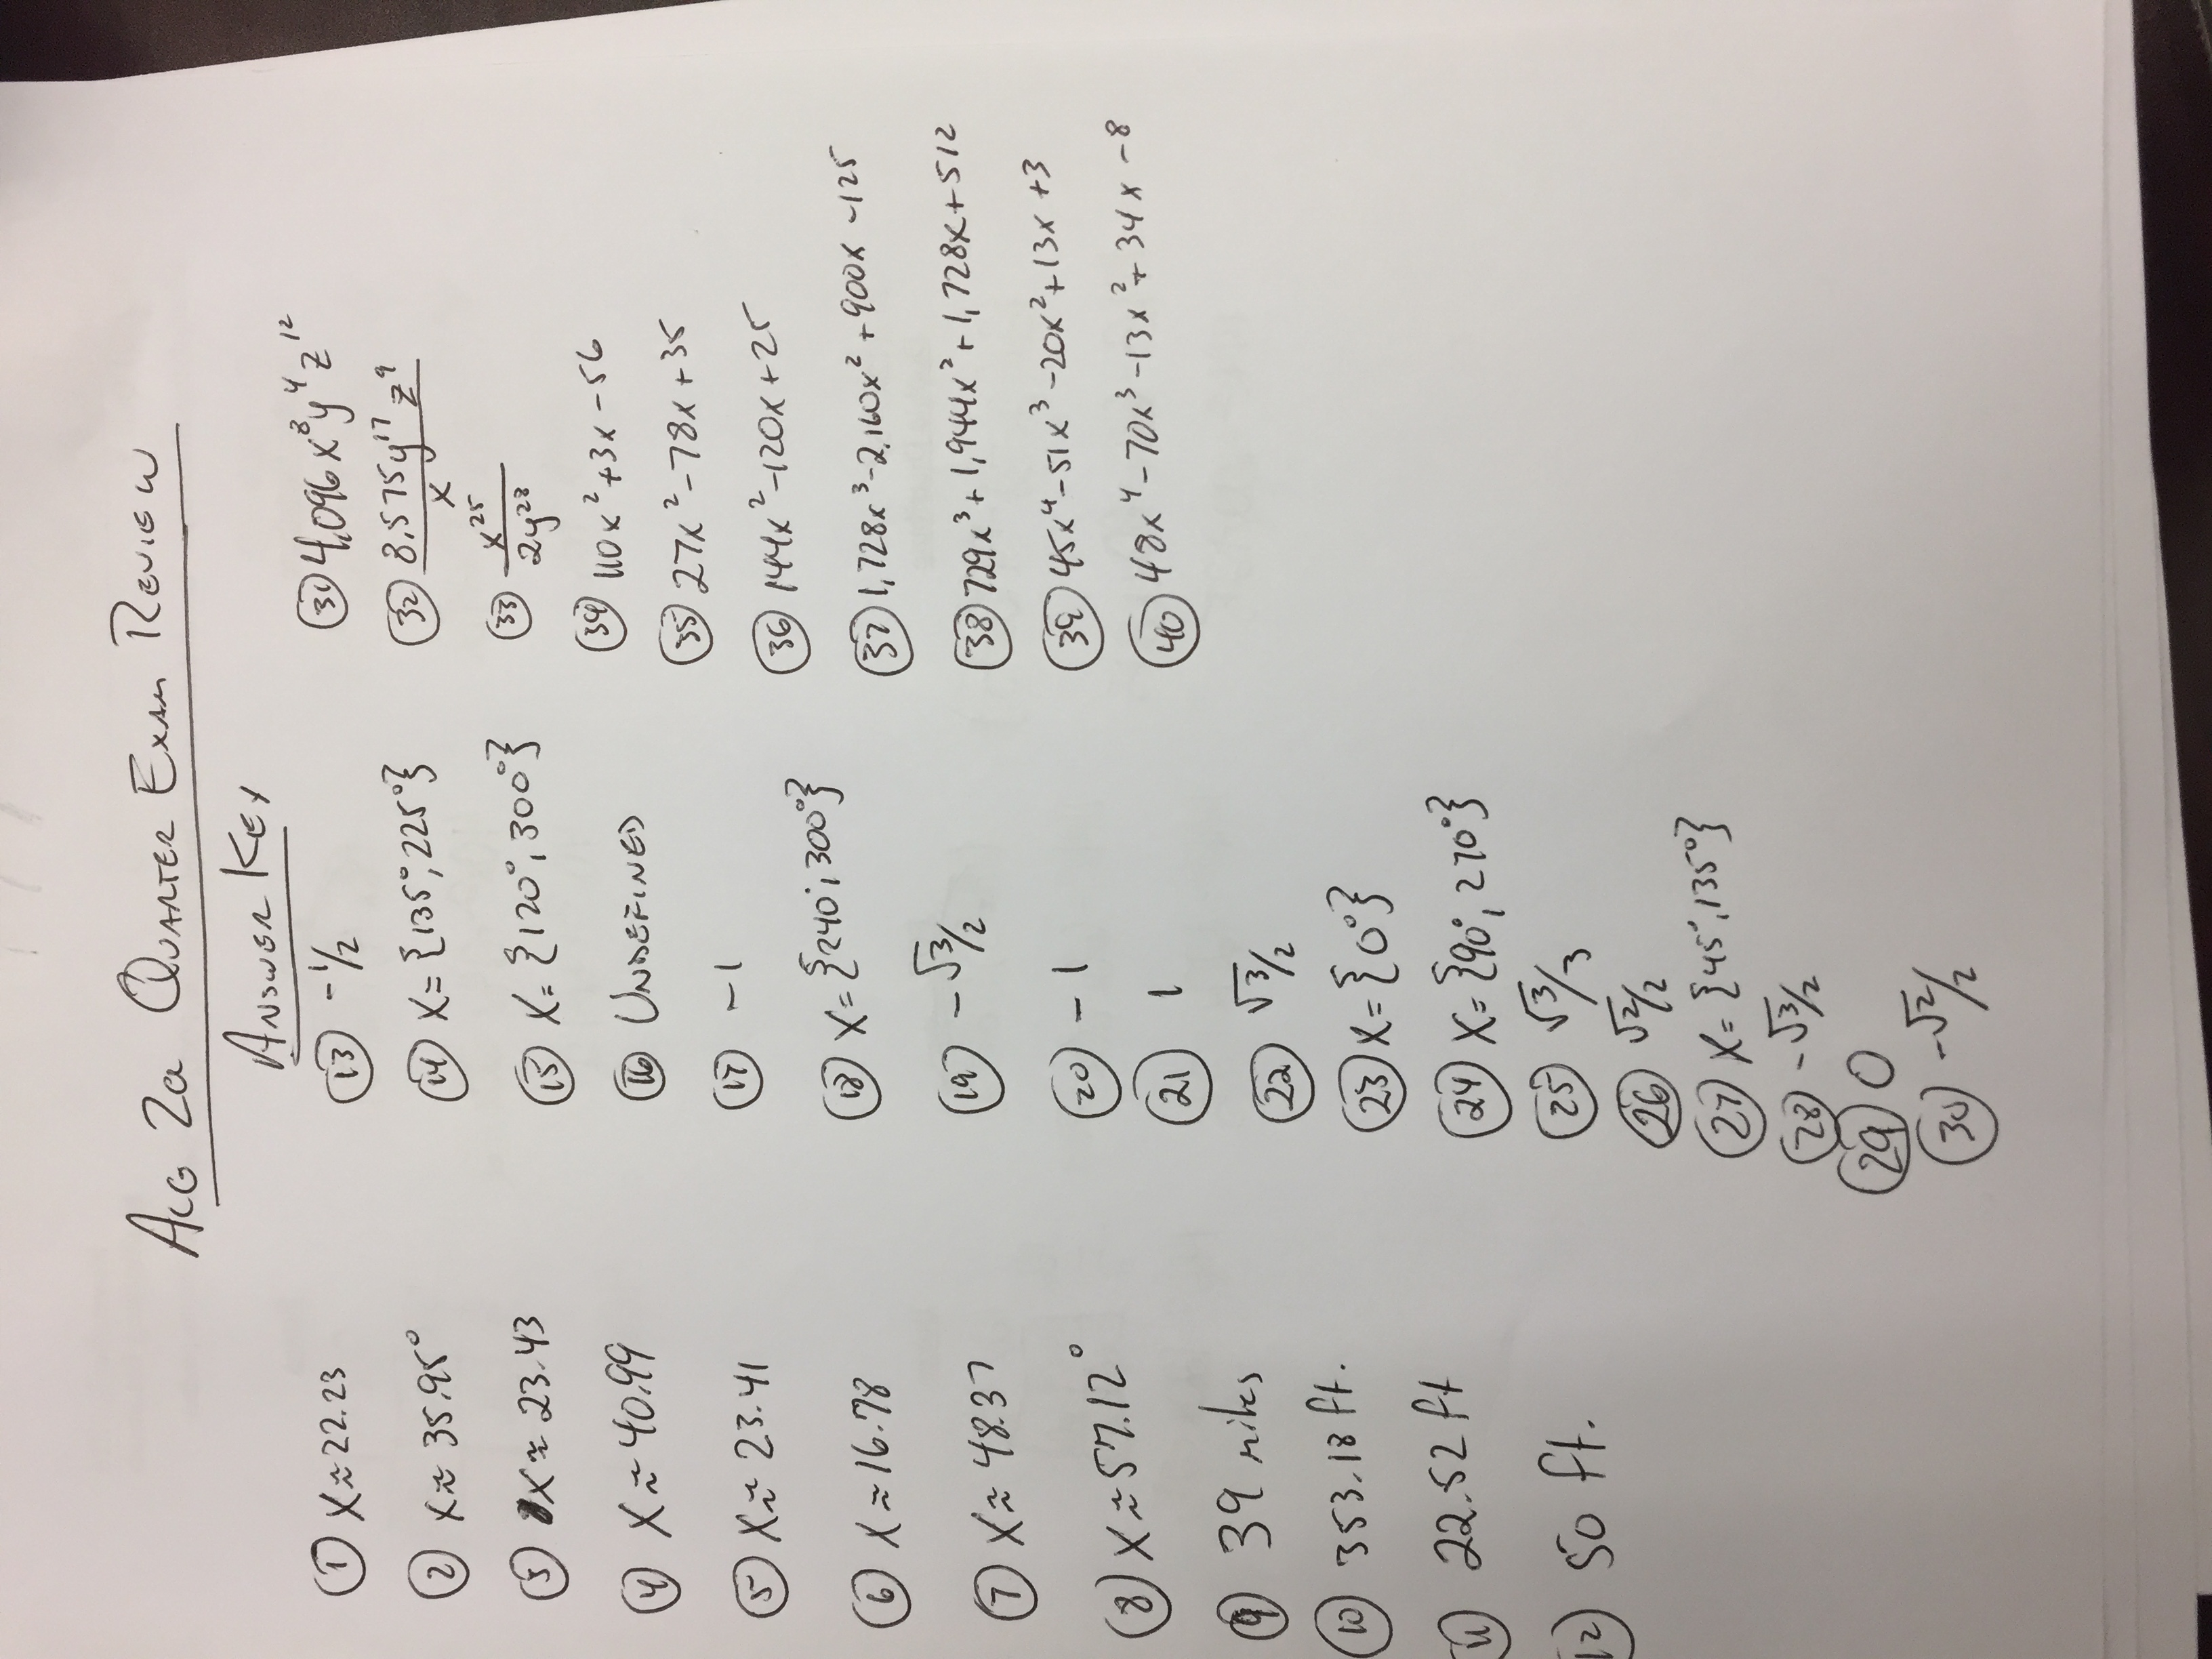 ALG 2a QUARTER EXAM REVIEW
ANSWER KEY
① X≈22.23
② X≈35.95°
③ X≈23.43
④ X≈40.99
⑤ X≈23.41
⑥ X≈16.78
⑦ X≈48.37
⑧ X≈57.12°
⑨ 39 miles
⑩ 353.18 ft.
⑪ 22.52 ft
⑫ 50 ft.
⑬ -1/2
⑭ X={135°,225°}
⑮ X={120°,300°}
⑯ UNDEFINED
⑰ -1
⑱ X={240°,300°}
⑲ -√3/2
⑳ -1
㉑ 1
㉒ √3/2
㉓ X={0°}
㉔ X={90°,270°}
㉕ √3/3
㉖ √2/2
㉗ X={45°,135°}
㉘ -√3/2
㉙ 0
㉚ -√2/2
㉛ 4,096x⁸y⁴z¹²
㉜ 8.575y¹⁷z⁹/x
㉝ x²⁵/2y²⁸
㉞ 110x²+3x-56
㉟ 27x²-78x+35
㊱ 144x²-120x+25
㊲ 1,728x³-2,160x²+900x-125
㊳ 729x³+1,944x²+1,728x+512
㊴ 45x⁴-51x³-20x²+13x+3
㊵ 48x⁴-70x³-13x²+34x-8